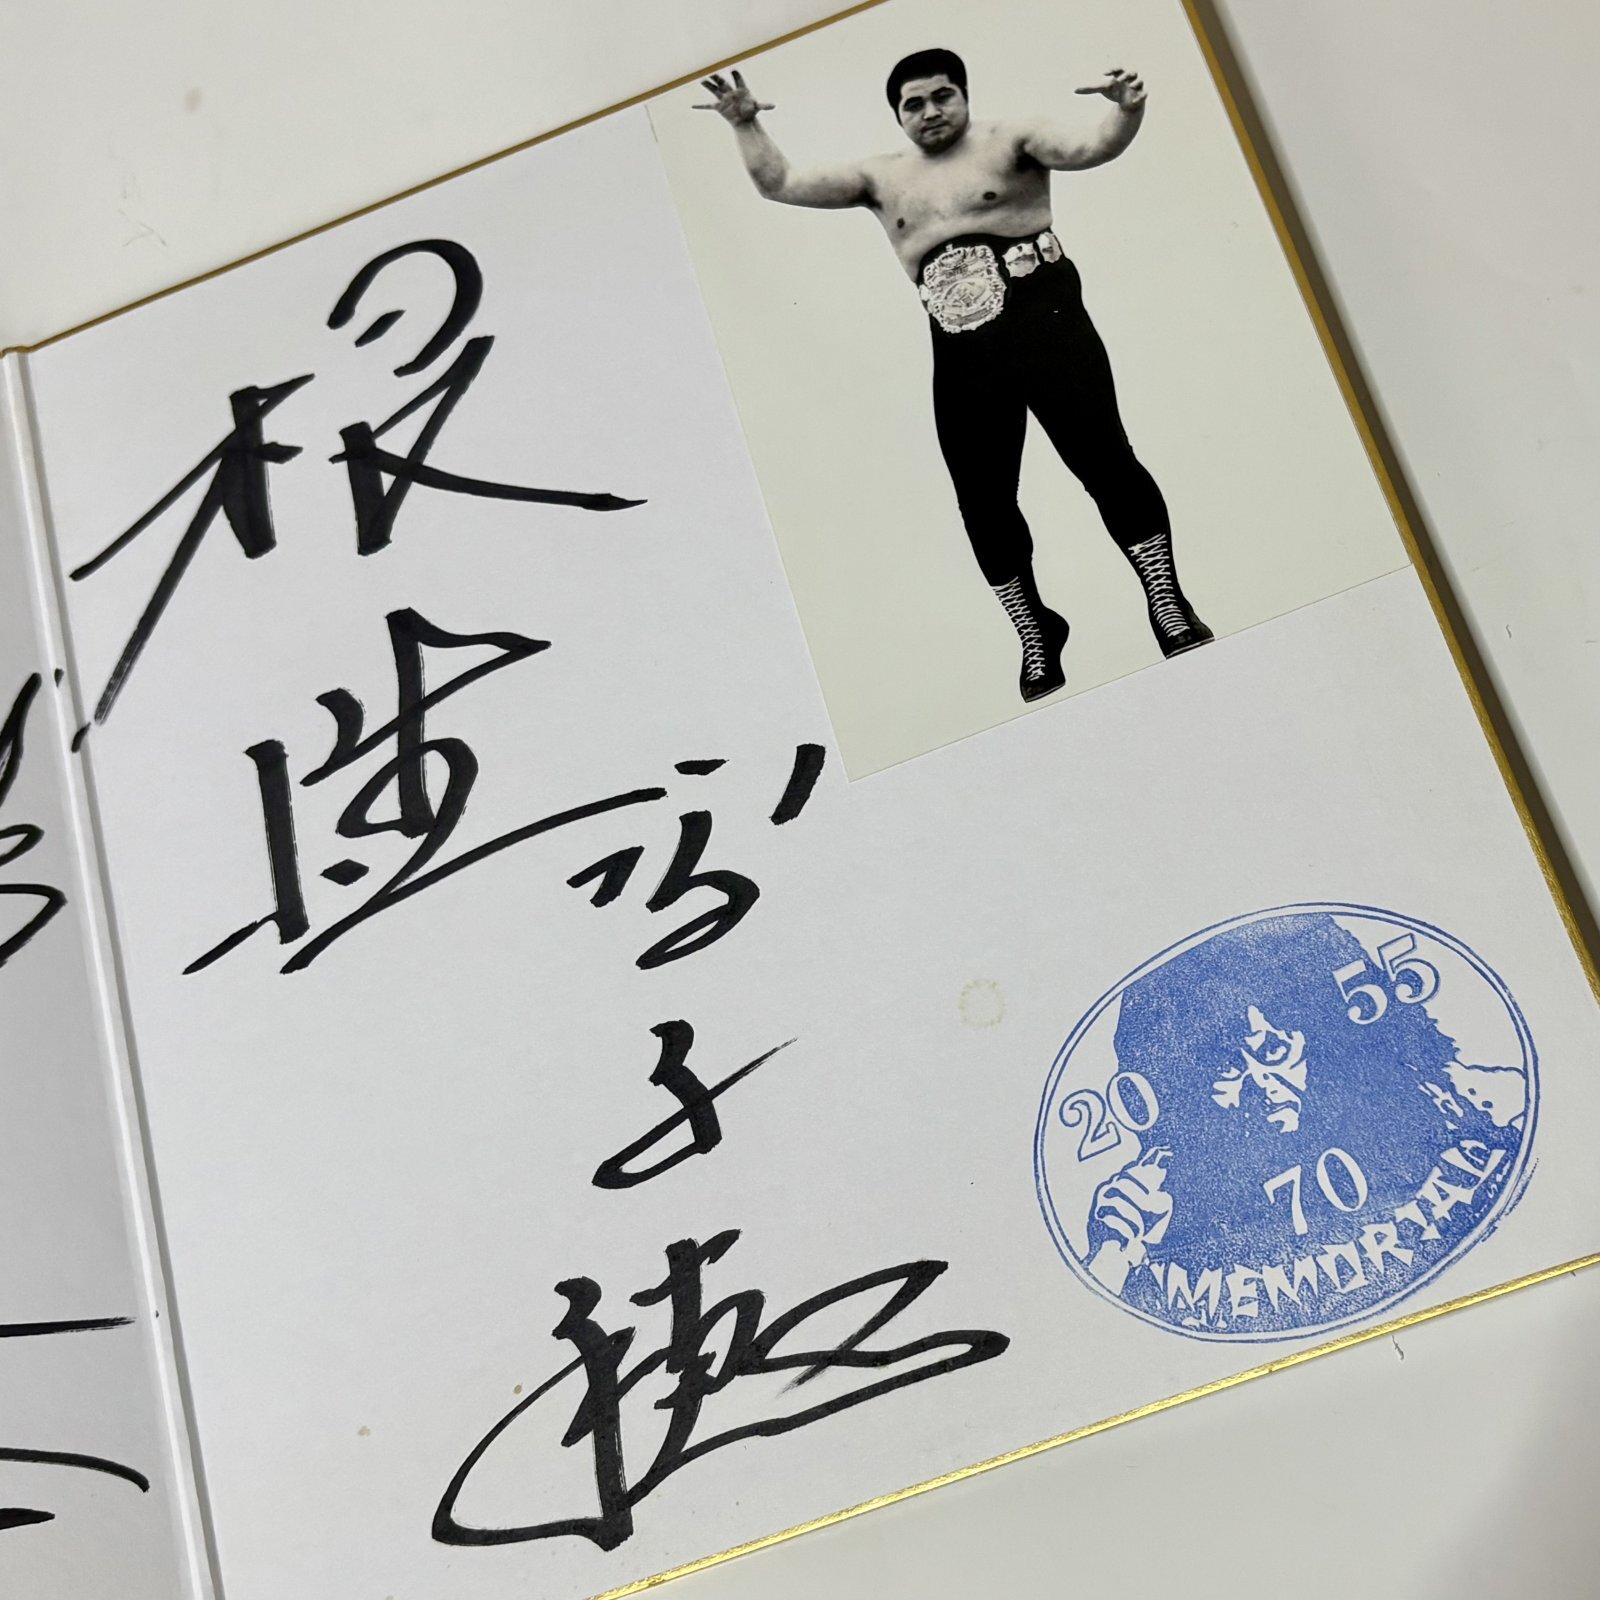 根性
高千穂
20
55
70
MEMORIAL